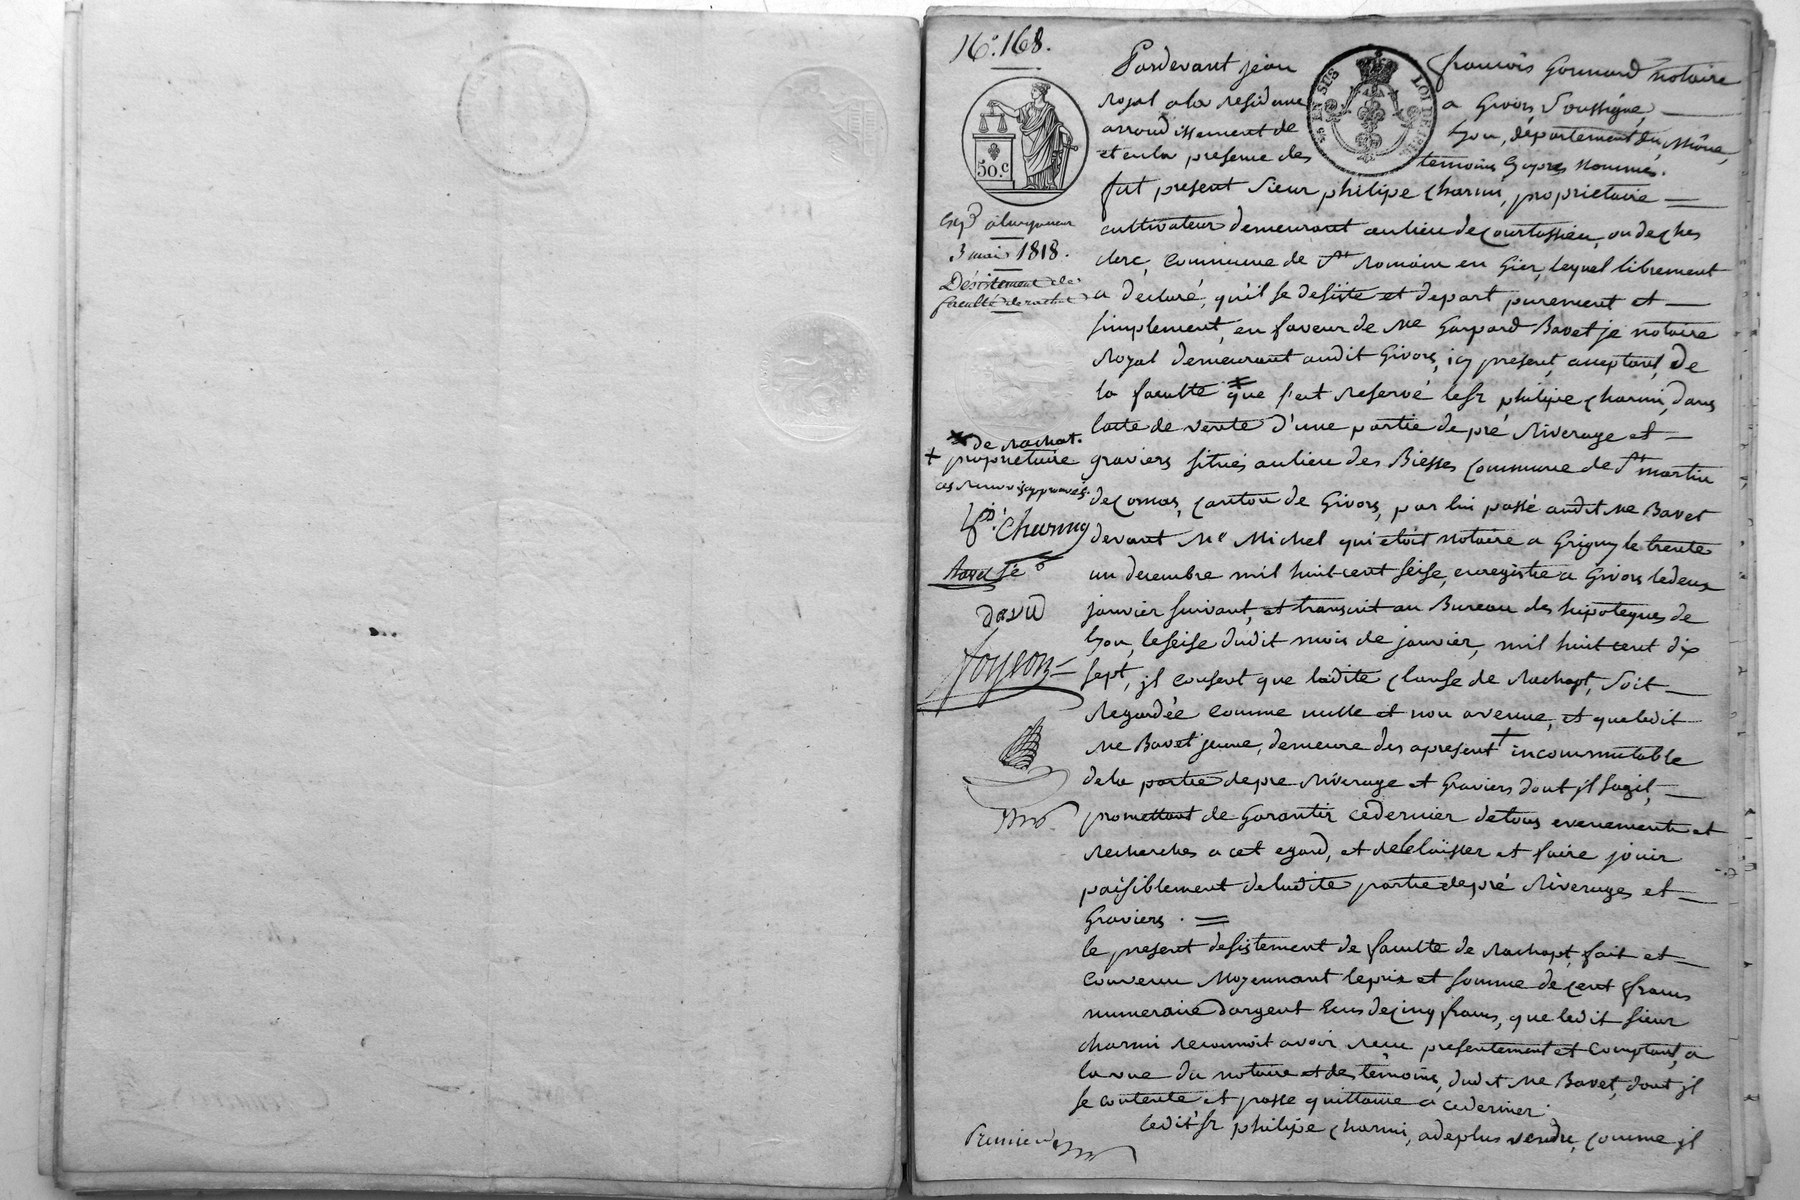 16.° 168.
50.c
EN SUS
LOI DE
3 mai 1818.
Désistement de
faculté de rachat
* de rachat.
+ propriétaire
ces renvois approuvés.
Charmy
Bavet je
David
Pardevant jean françois Gonnard notaire
royal a la residence a Givors soussigné,
arrondissement de Lyon, département du Rhône,
et en la presence des temoins Cy apres nommés.
fut present sieur philipe charmi, propriétaire
cultivateur demeurant au lieu de courtassieu, ou de ches
clerc, commune de St romain en Gier, lequel librement
a declaré, qu'il se desiste et depart purement et
simplement, en faveur de me Gaspard Bavet je notaire
Royal demeurant audit Givors, icy present, acceptant, de
la faculté * que s'est reservé le sr philipe charmi, dans
l'acte de vente d'une partie de pré Riverage et
graviers situés au lieu des Biesses commune de St martin
de cornas, canton de Givors, par lui passé audit me Bavet
devant Me Michel qui etoit notaire a Grigny le trente
un decembre mil huit cent seise, enregistré a Givors le deux
janvier suivant, et transcrit au Bureau des hipoteques de
Lyon, le seise dudit mois de janvier, mil huit cent dix
sept, il consent que ladite clause de Rachapt, soit
Regardée comme nulle et non avenue, et que ledit
me Bavet jeune, demeure des apresent + incommutable
de la partie de pre Riverage et Graviers dont il sagit,
promettant de Garantir ce dernier de tous evenements et
recherches a cet egard, et de le laisser et faire jouir
paisiblement de ladite partie de pré Riverages et
Graviers.
le present desistement de faculté de Rachapt, fait et
convenu Moyennant le prix et somme de cent francs
numeraire d'argent Ecus de cinq francs, que ledit sieur
charmi reconnoit avoir recu presentement et comptant, a
la vue du notaire et des témoins, dudit me Bavet, dont il
se contente et passe quittance a ce dernier.
ledit sr philipe charmi, a de plus vendu, comme il